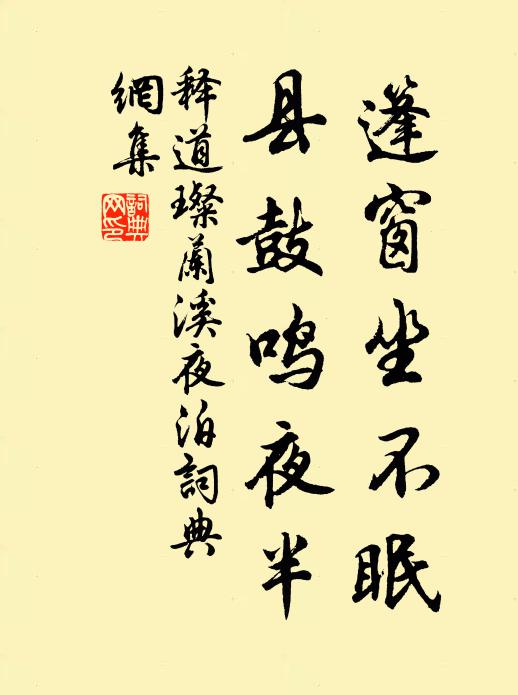 蓬窗坐不眠
县鼓鸣夜半
释道璨蘭溪夜泊詞典
網集
詞典
网印